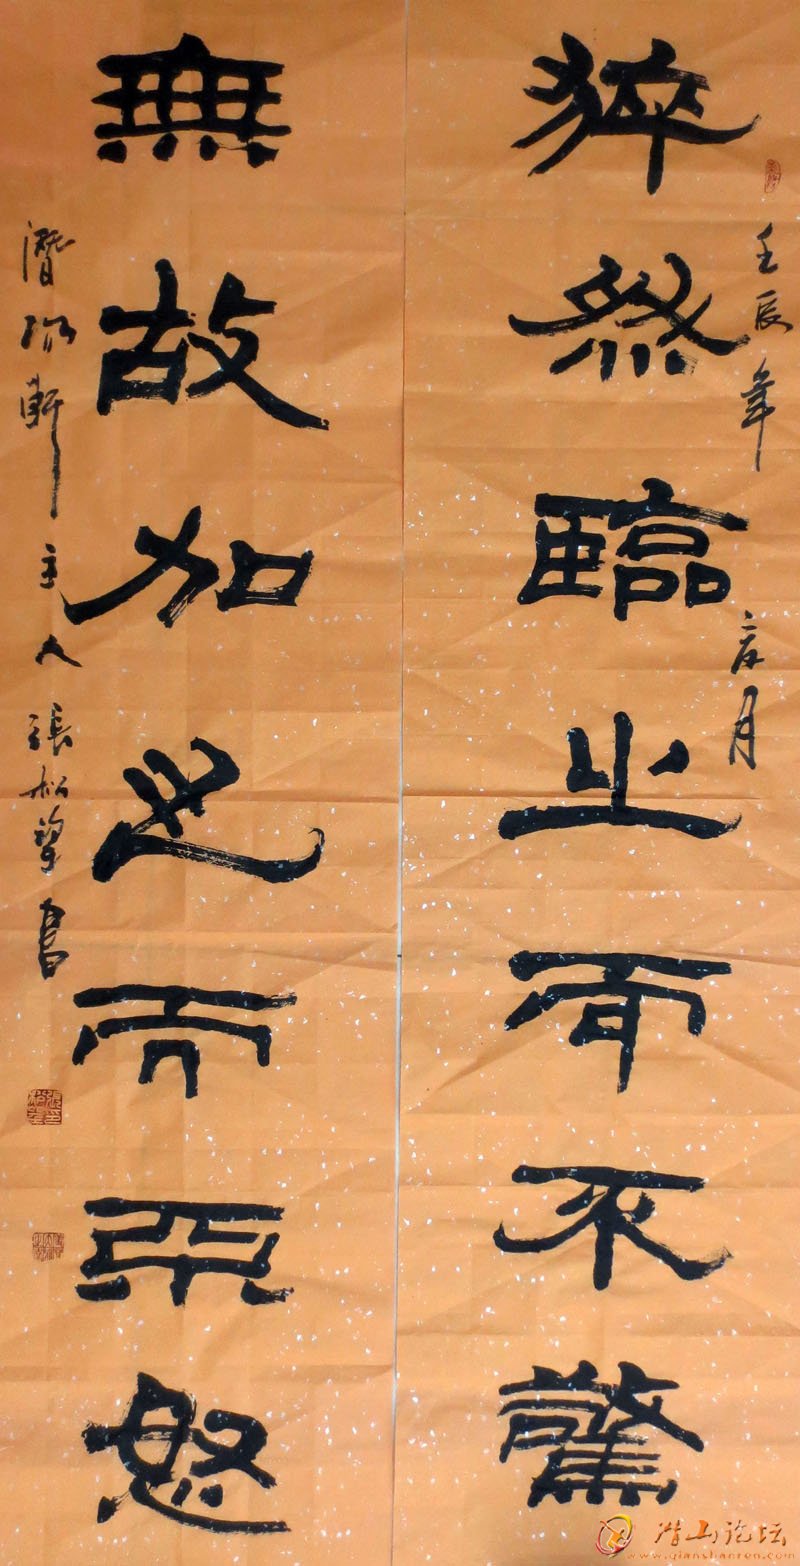 猝然臨之而不驚
壬辰年亥月
無故加之而不怒
潛軒主人張松書
潜山论坛
www.qianshanren.com